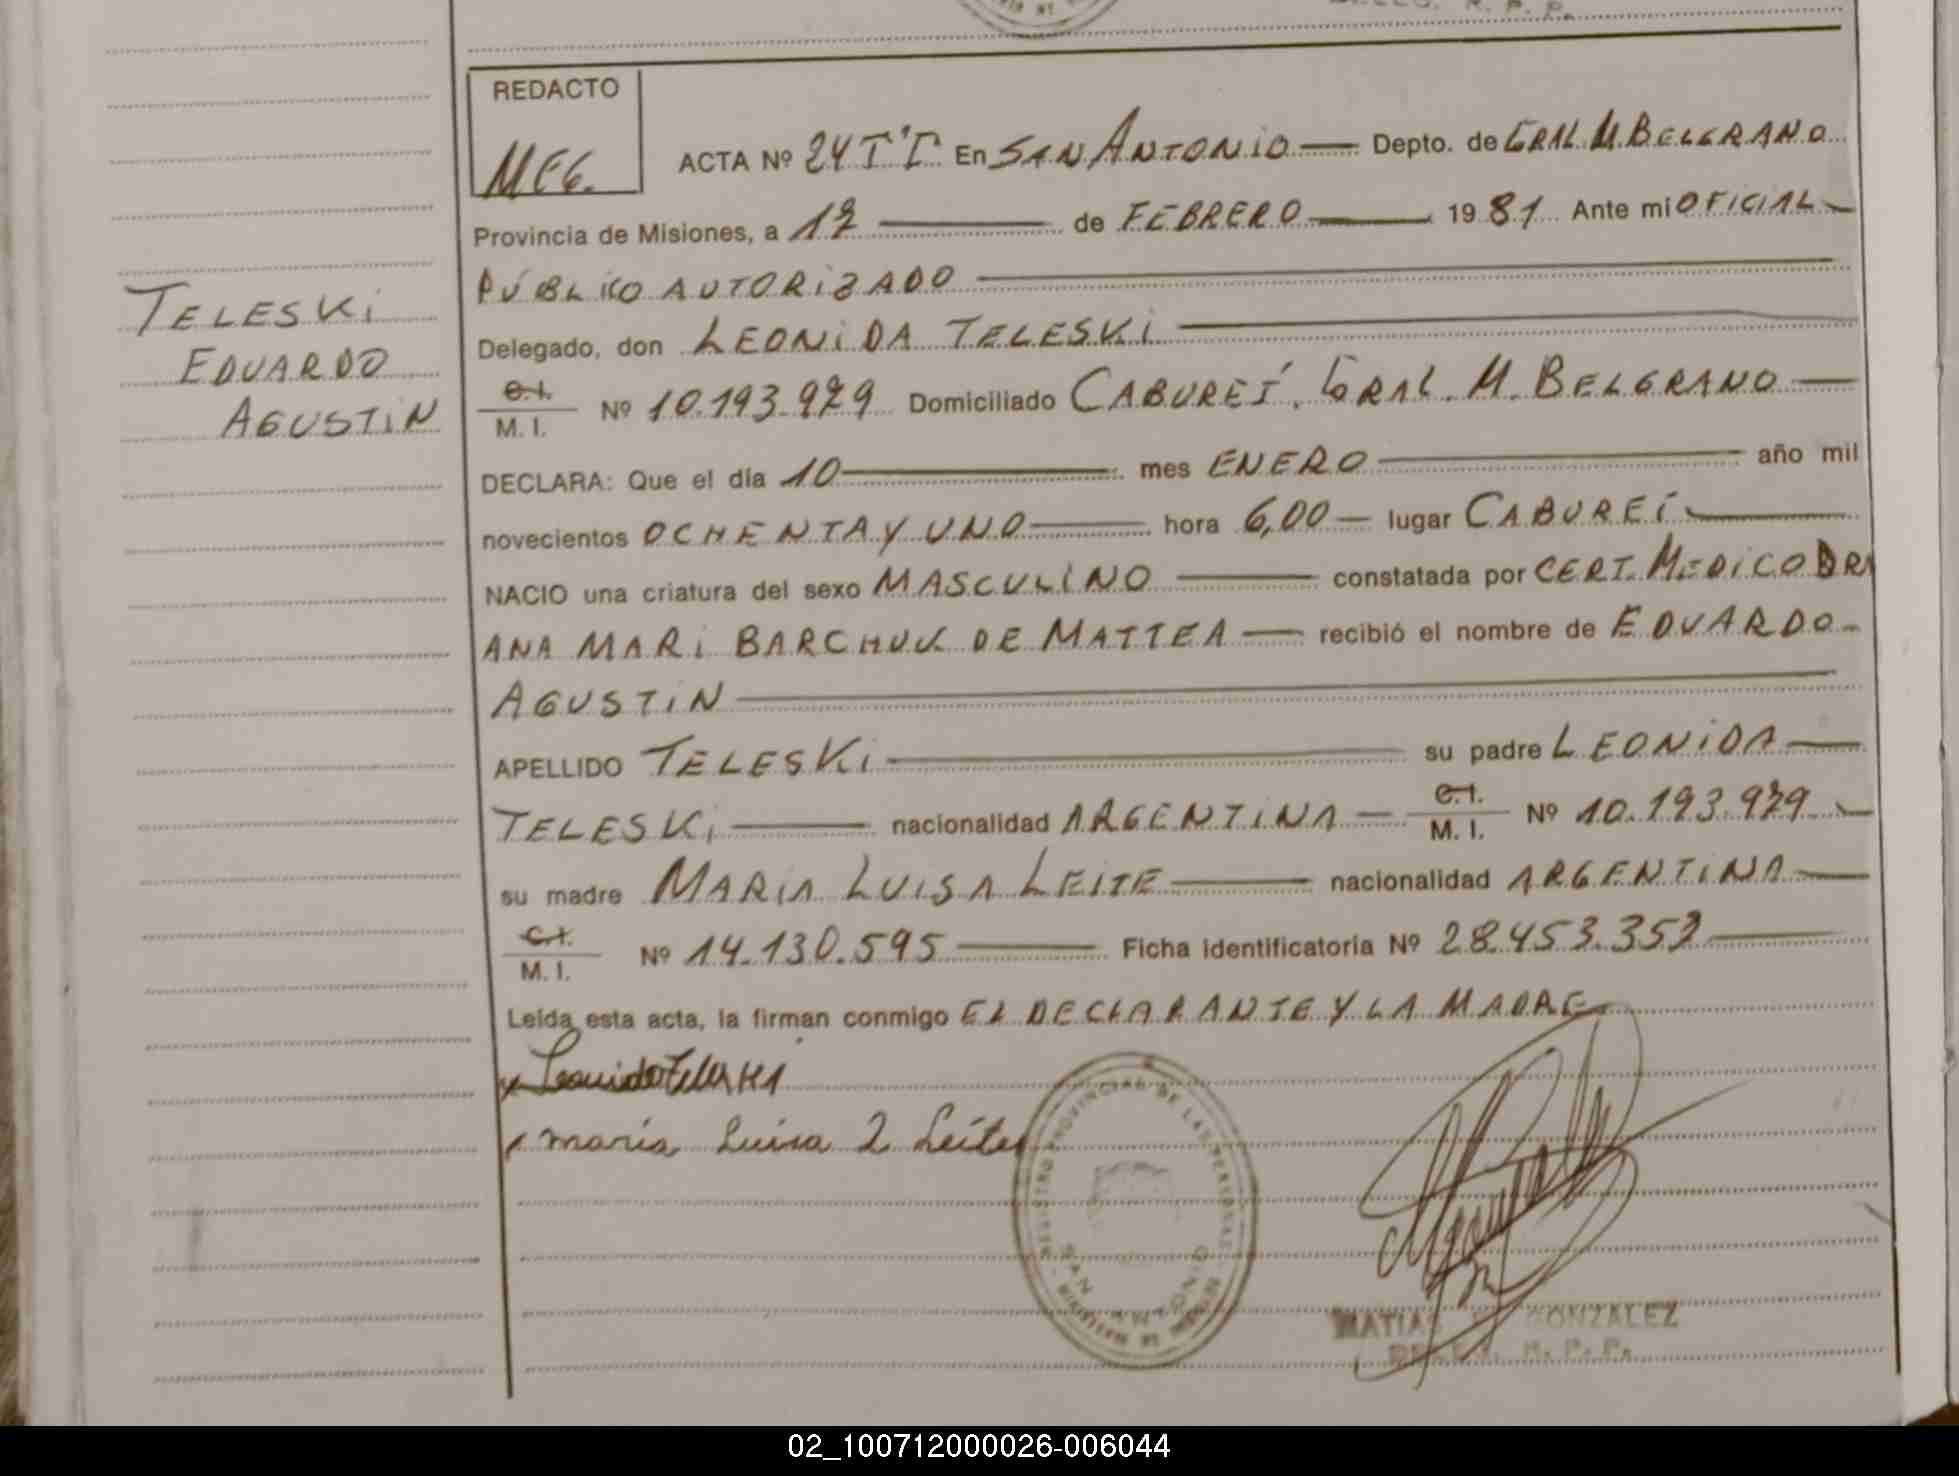 TELESKI
EDUARDO
AGUSTIN
R. P. P.
REDACTO
MEG.
ACTA Nº 24 TºI En SAN ANTONIO Depto. de GRAL. M. BELGRANO
Provincia de Misiones, a 17 de FEBRERO 1981 Ante mi OFICIAL
PÚBLICO AUTORIZADO
Delegado, don LEONIDA TELESKI
C.I.
M. I. Nº 10.193.979 Domiciliado CABUREÍ. GRAL. M. BELGRANO
DECLARA: Que el día 10 mes ENERO año mil
novecientos OCHENTA Y UNO hora 6,00 lugar CABUREÍ
NACIO una criatura del sexo MASCULINO constatada por CERT. MEDICO DRA
ANA MARI BARCHUK DE MATTEA recibió el nombre de EDUARDO
AGUSTIN
APELLIDO TELESKI su padre LEONIDA
TELESKI nacionalidad ARGENTINA C.I. M. I. Nº 10.193.979
su madre MARIA LUISA LEITE nacionalidad ARGENTINA
C.I.
M. I. Nº 14.130.595 Ficha identificatoria Nº 28.453.357
Leída esta acta, la firman conmigo EL DECLARANTE Y LA MADRE
Leonido Teleski
maria Luisa 2 Leite
REGISTRO PROVINCIAL DE LAS PERSONAS
SAN ANTONIO
MATIAS GONZALEZ
R. P. P.
02_100712000026-006044